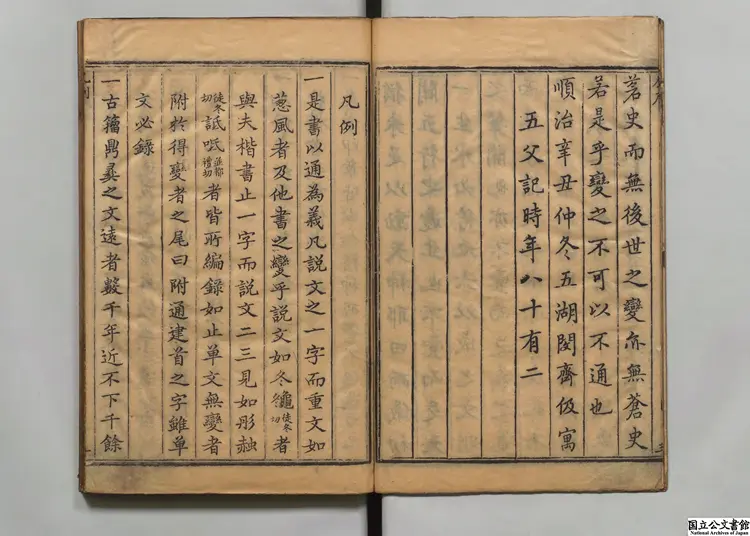 蒼史而無後世之變亦無蒼史
若是乎變之不可以不通也
順治辛丑仲冬五湖閔齊伋寓
五父記時年八十有二
凡例
一是書以通為義凡説文之一字而重文如
蔥風者及他書之變乎説文如冬𪛁徒冬切者
與夫楷書止一字而説文二三見如彤赨
徒冬切詆呧並都禮切者皆所編録如止单文無變者
附於得變者之尾曰附通建首之字雖单
文必録
一古籀鼎彝之文遠者數千年近不下千餘
国立公文書館
National Archives of Japan